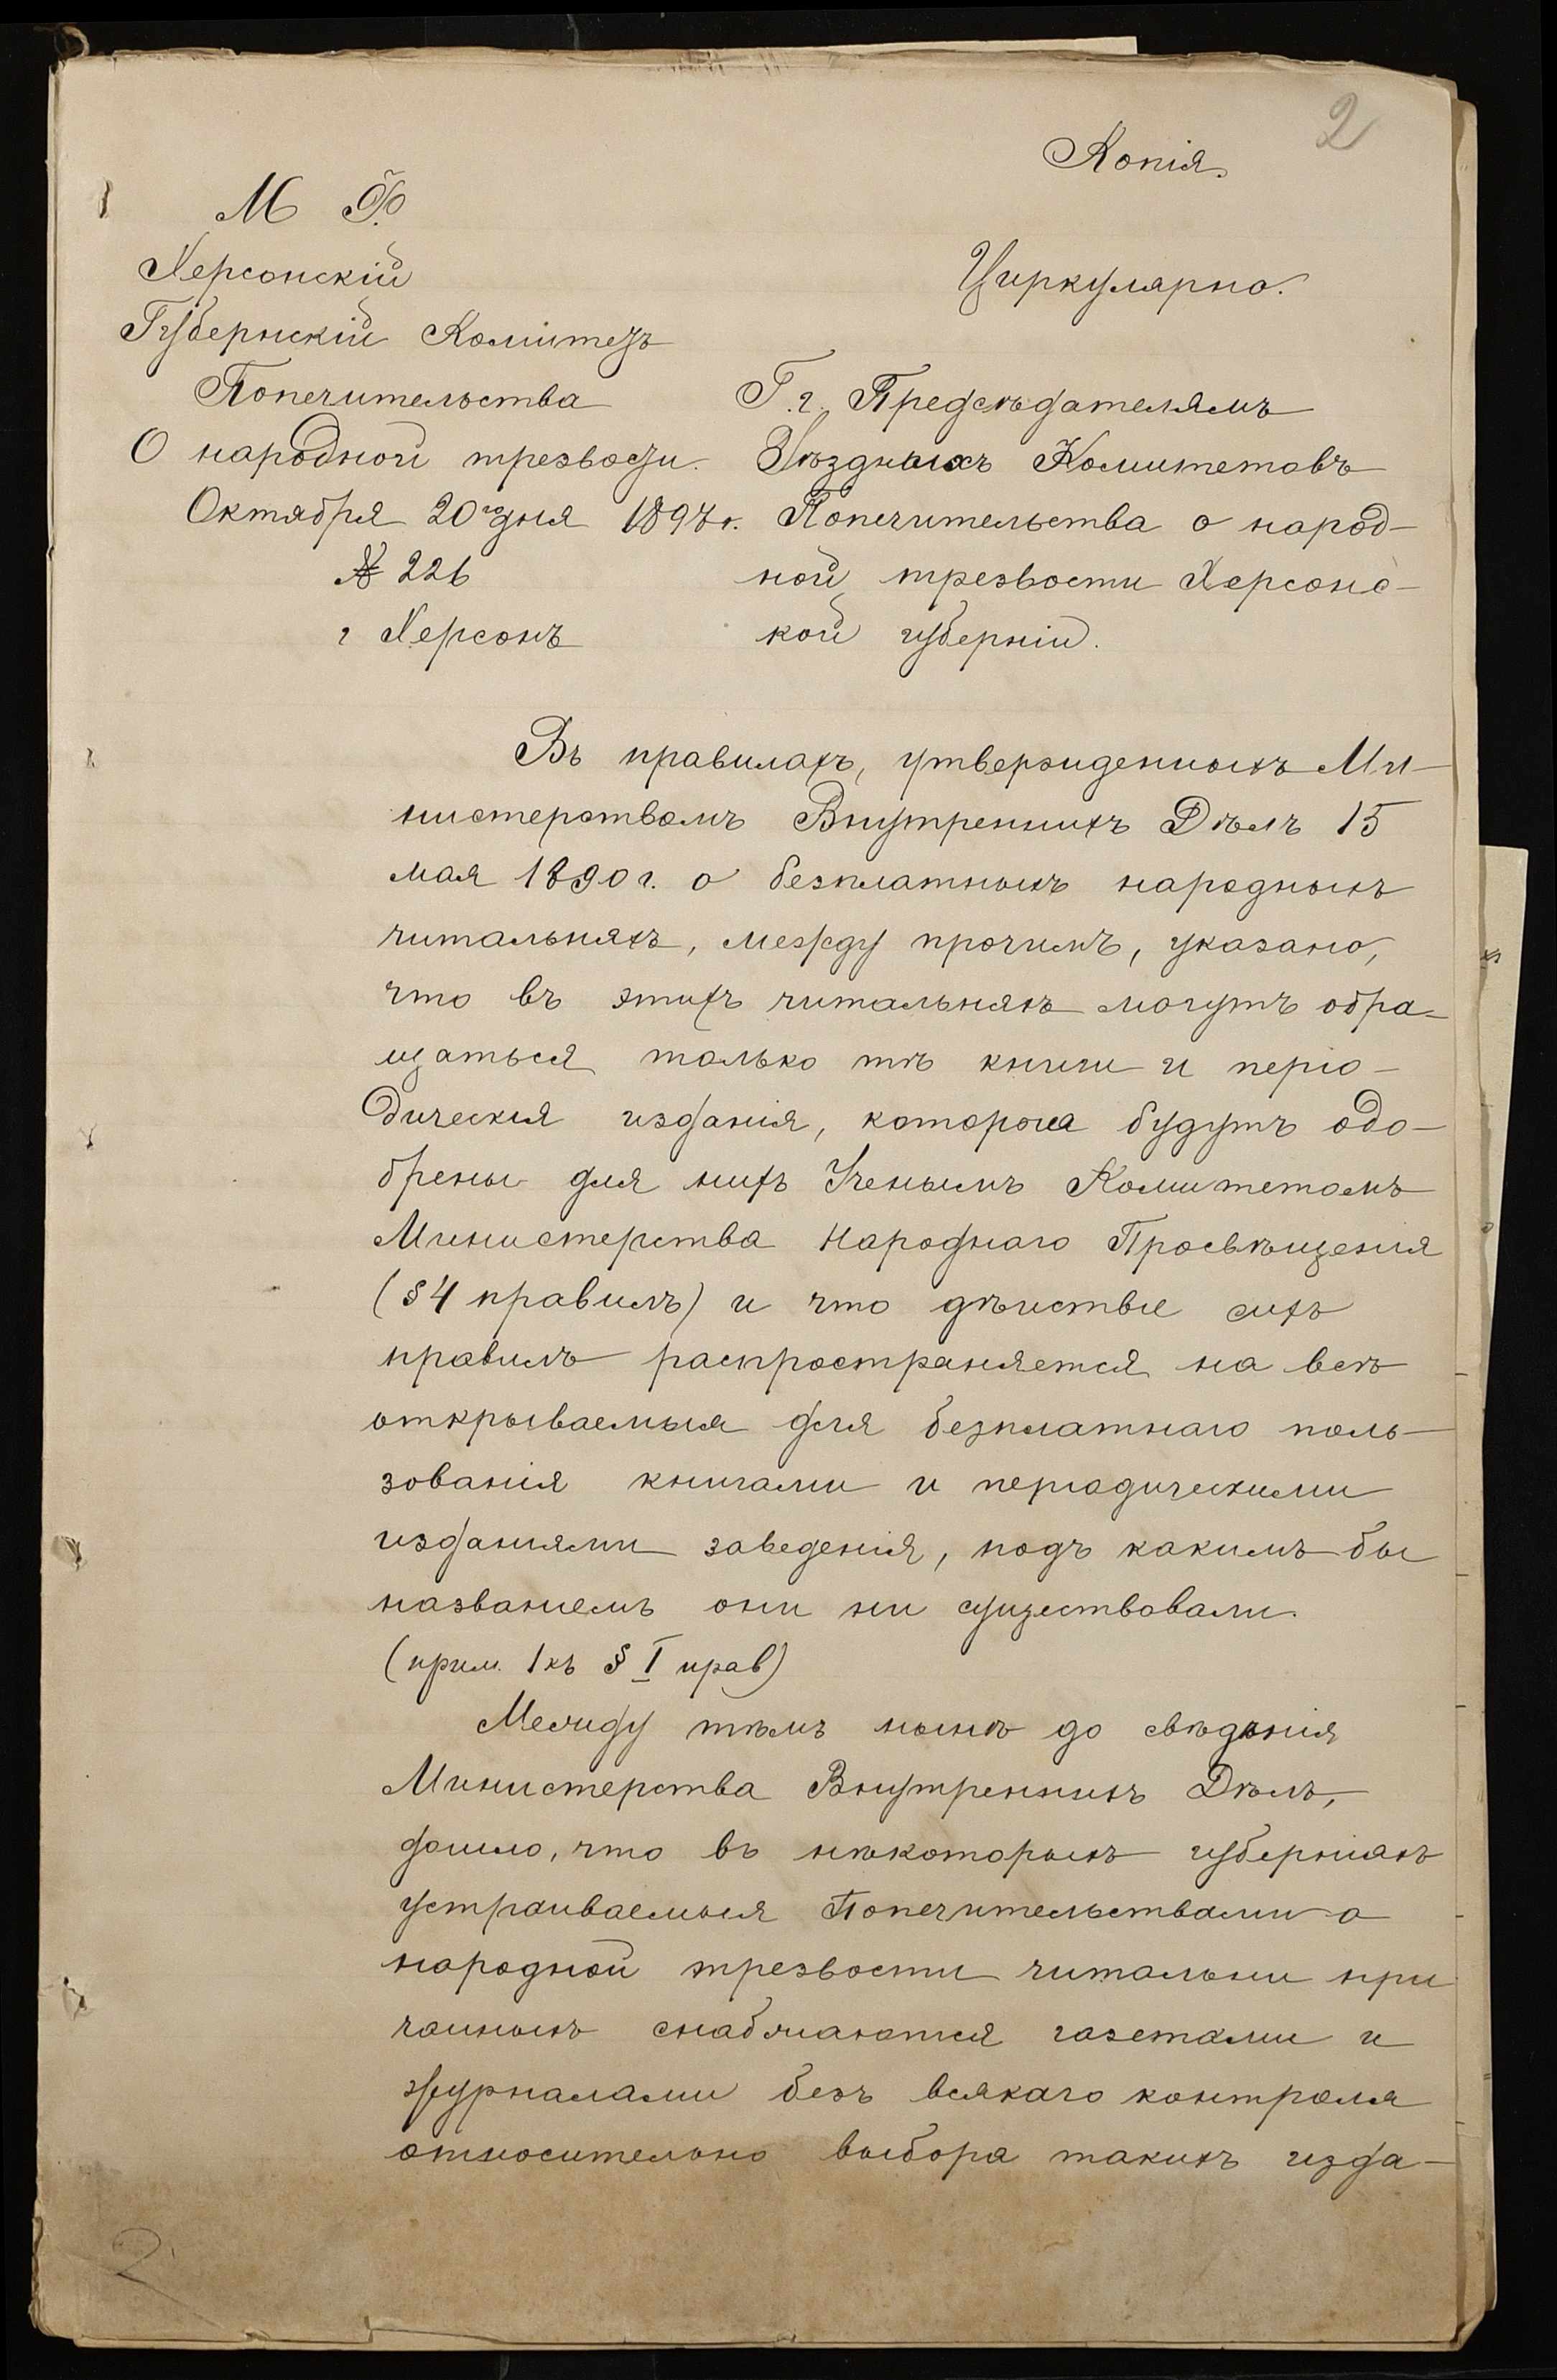 2
Копія.
М Ф.
Херсонскій
Губернскій Комитетъ
Попечительства
О народной трезвости.
Октября 20го дня 1897 г.
№ 226
г Херсонъ
Циркулярно.
Г.г. Предсѣдателямъ
Уѣздныхъ Комитетовъ
Попечительства о народ-
ной трезвости Херсонс-
кой губерніи.
Въ правилахъ, утвержденныхъ Ми-
нистерствомъ Внутреннихъ Дѣлъ 15
мая 1890 г. о безплатныхъ народныхъ
читальняхъ, между прочимъ, указано,
что въ этихъ читальняхъ могутъ обра-
щаться только тѣ книги и періо-
дическія изданія, которыя будутъ одо-
брены для нихъ Ученымъ Комитетомъ
Министерства Народнаго Просвѣщенія
(§ 4 правилъ) и что дѣйствіе сихъ
правилъ распространяется на всѣ
открываемыя для безплатнаго поль-
зованія книгами и періодическими
изданіями заведенія, подъ какимъ бы
названіемъ они ни существовали.
(прим. 1 къ § I прав)
Между тѣмъ нынѣ до свѣдѣнія
Министерства Внутреннихъ Дѣлъ,
дошло, что въ нѣкоторыхъ губерніяхъ
устраиваемыя Попечительствами о
народной трезвости читальни при
чайныхъ снабжаются газетами и
журналами безъ всякаго контроля
относительно выбора такихъ изда-
2